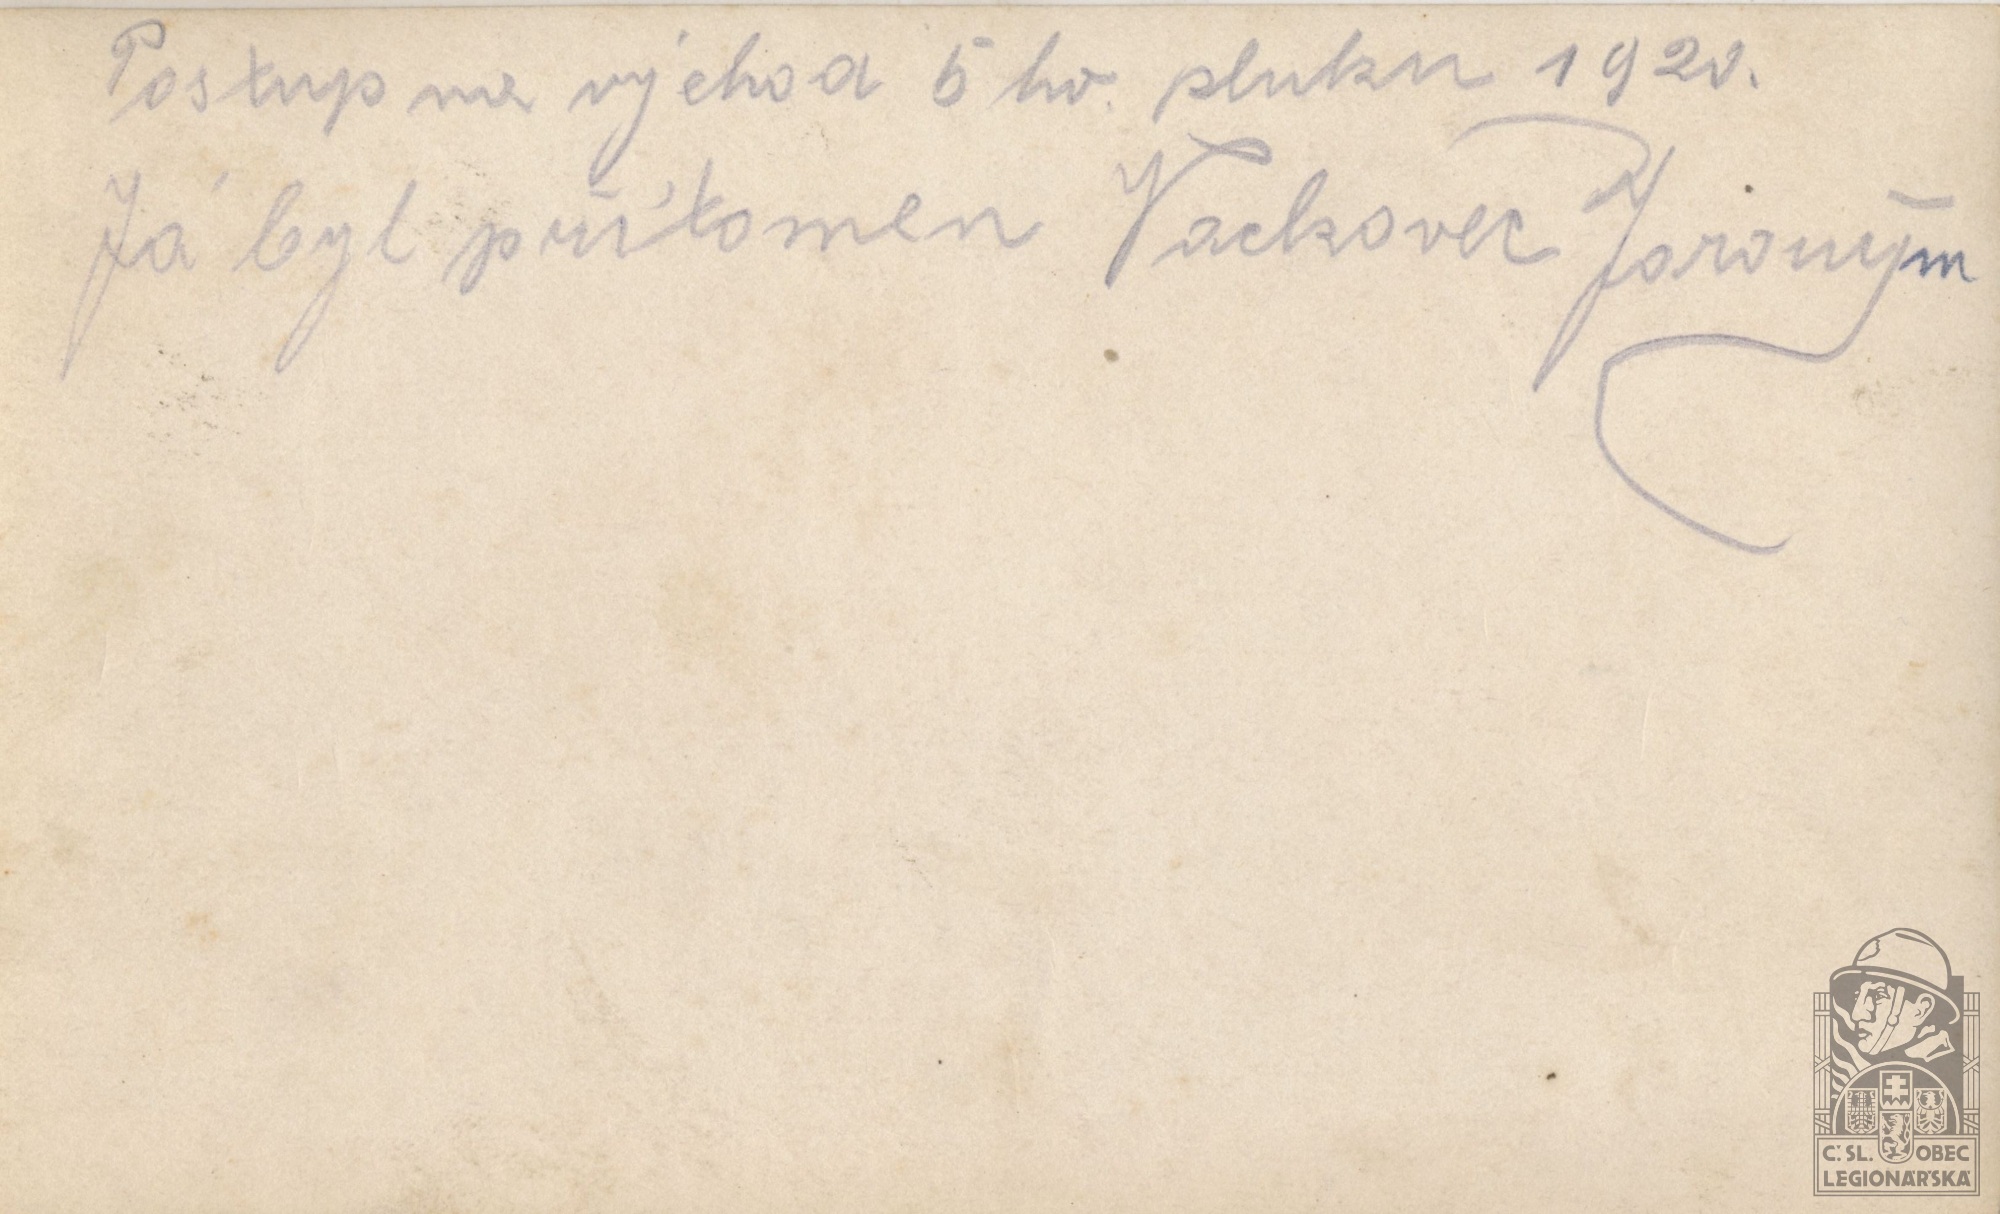 Postup na východ 5 hv. pluku 1920.
Já byl přítomen Vackovec Jaroným
Č.SL. OBEC
LEGIONÁŘSKÁ